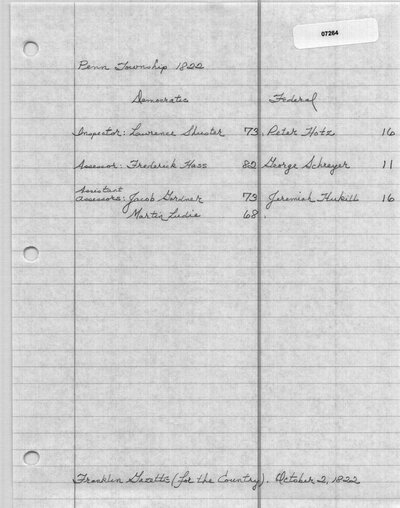 07264
Penn Township 1822
Democrats Federal
Inspector: Lawrence Shuster 73 Peter Hotz 16
Assessor: Frederick Hass 82 George Schreyer 11
Assistant
Assessors: Jacob Gardner 73 Jeremiah Hukill 16
Martin Ludie 68
Franklin Gazette (for the Country). October 2, 1822